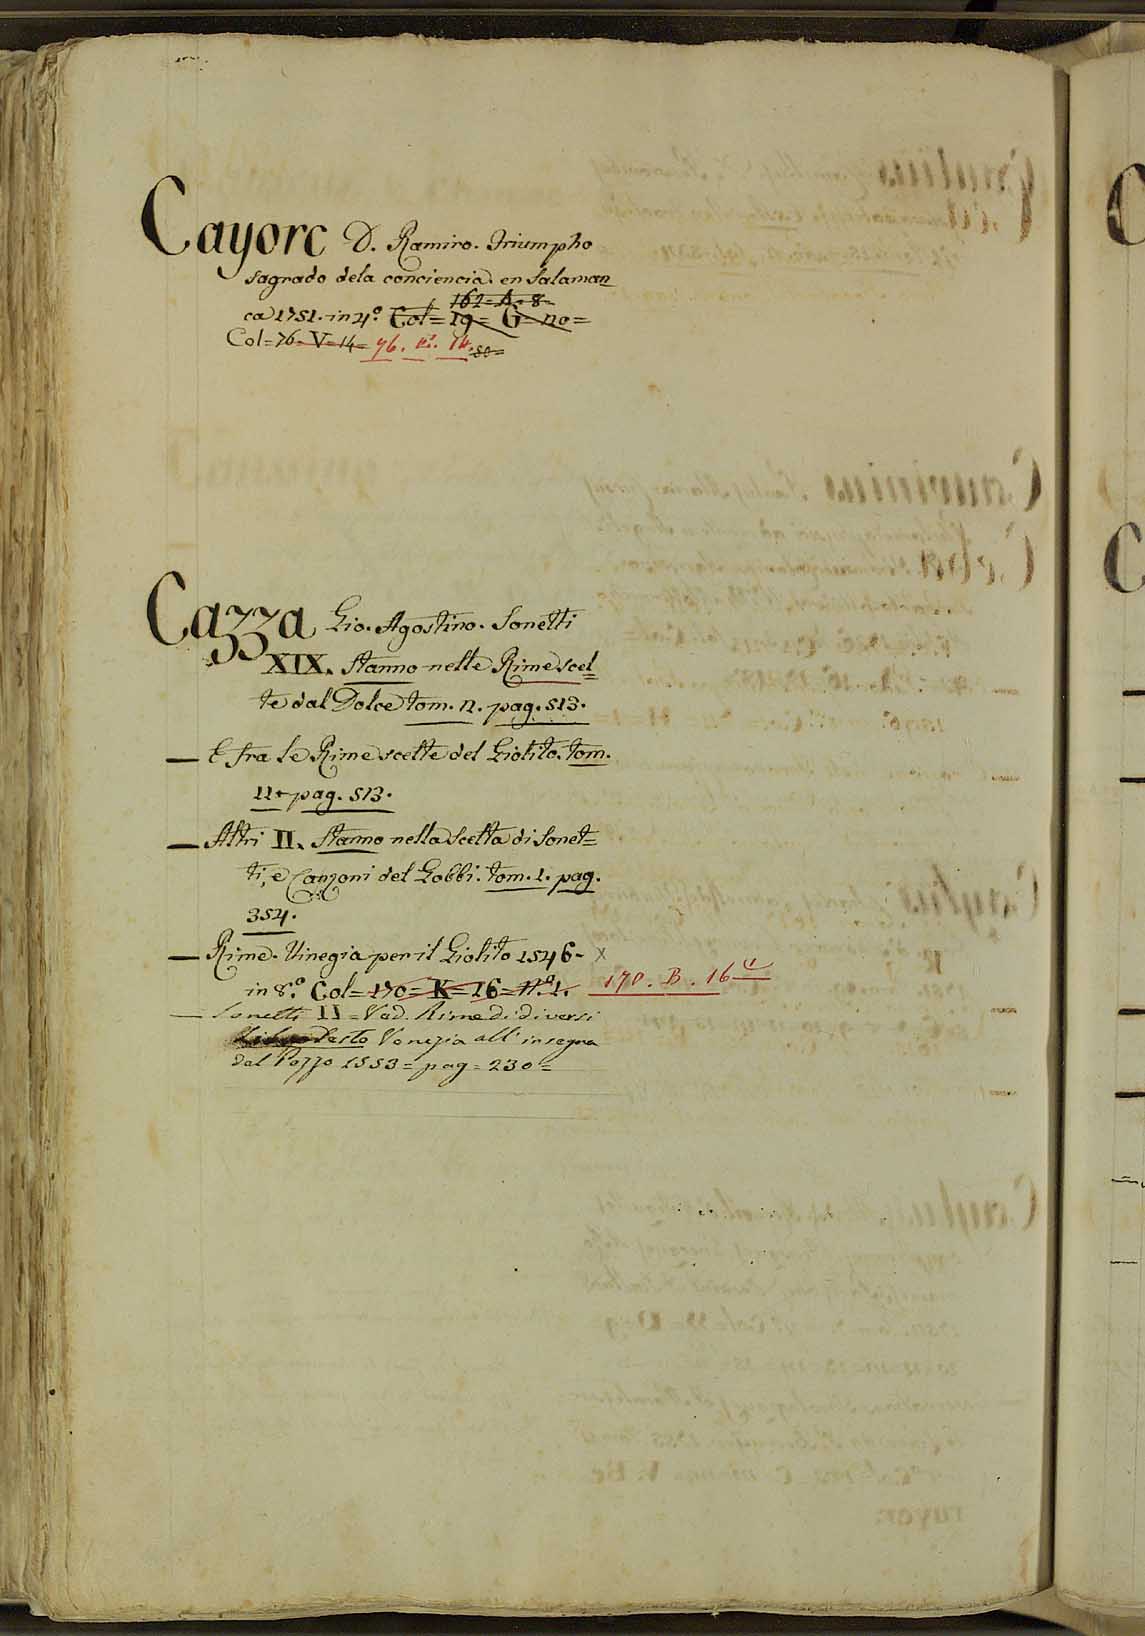 Cayorc D. Ramiro. Triumpho
sagrado dela conciencia. en Salaman
162 = A. 8 =
ca 1751. in 4.º Col = 19 = G = 20 =
Col = 76. V = 14 = 76. 14. 50 =
Cazza Gio. Agostino. Sonetti
XIX. Stanno nelle Rime scel=
te dal Dolce tom. 2. pag. 513.
— E fra le Rime scelte del Giolito. tom.
pag. 513.
— Altri II. Stanno nella Scelta di Sonet=
ti, e Canzoni del Gobbi. tom. 1. pag.
354.
— Rime. Vinegia per il Giolito 1546 - x
in 8.º Col = 170 = K = 16 = n.º 1. 170. B. 16
— Sonetti II = Ved. Rime di diversi
Sesto Venezia all' insegna
del Pozzo 1553 = pag = 230 =